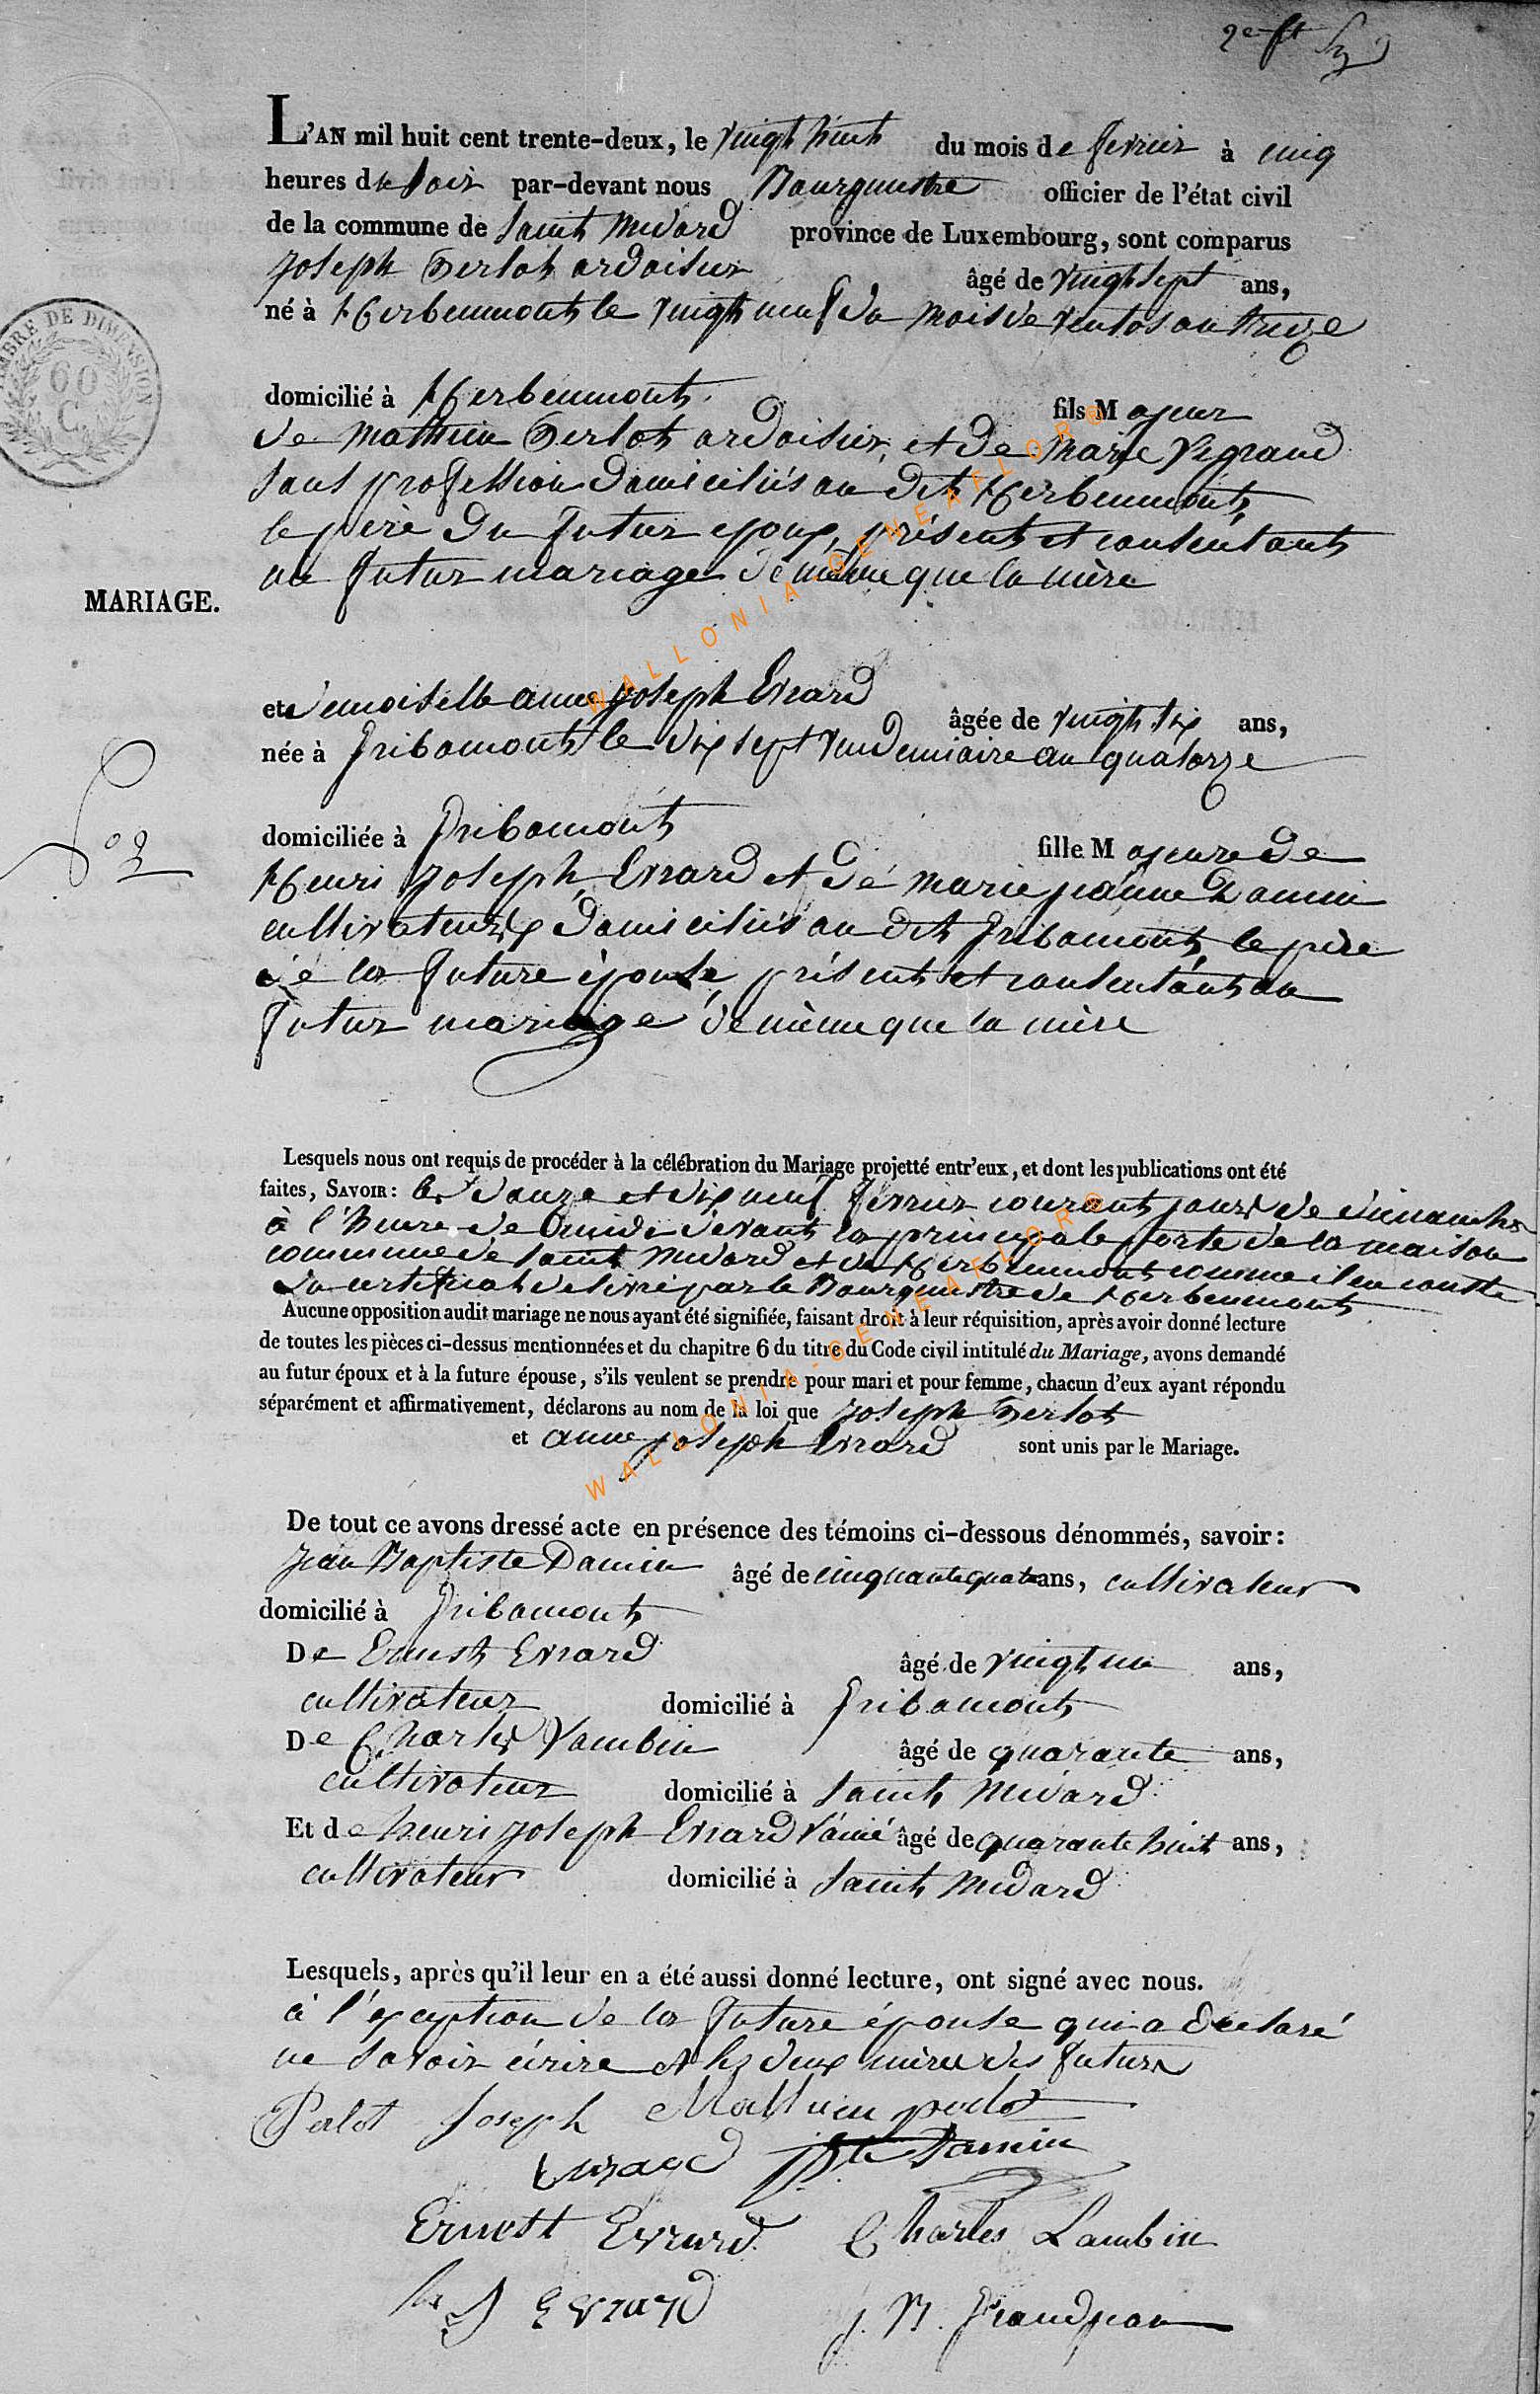 2e ft
L'AN mil huit cent trente-deux, le vingt huit du mois de fevrier à cinq
heures du soir par-devant nous Bourguestre officier de l'état civil
de la commune de Saint Medard province de Luxembourg, sont comparus
Joseph Perlot ardoisier âgé de vingt sept ans,
né à Herbeumont le vingt neuf du mois de ventos an treize
domicilié à Herbeumont fils Majeur
de Mathieu Perlot ardoisier, et de Marie
sans profession domiciliés au dit Herbeumont,
le père du futur epoux, présent et consentant
au futur mariage de même que la mère
MARIAGE.
et demoiselle anne joseph Evrard âgée de vingt six ans,
née à gribomont le dix sept vendemiaire an quatorze
domiciliée à gribomont fille Majeure de
Henri Joseph Evrard et de marie jeanne Damin
cultivateurs domiciliés au dit gribomont, le père
de la future épouse, présent et consentant au
futur mariage de même que la mère
TIMBRE DE DIMENSION
60
C.
Lesquels nous ont requis de procéder à la célébration du Mariage projetté entr'eux, et dont les publications ont été
faites, SAVOIR: les douze et dix neuf fevrier courant jours de dimanche
à l'heure de midi devant la principale porte de la maison
commune de saint Medard et de Herbeumont comme il en conste
du certificat delivré par le Bourguestre de Herbeumont
Aucune opposition audit mariage ne nous ayant été signifiée, faisant droit à leur réquisition, après avoir donné lecture
de toutes les pièces ci-dessus mentionnées et du chapitre 6 du titre du Code civil intitulé du Mariage, avons demandé
au futur époux et à la future épouse, s'ils veulent se prendre pour mari et pour femme, chacun d'eux ayant répondu
séparément et affirmativement, déclarons au nom de la loi que Joseph Perlot
et anne joseph Evrard sont unis par le Mariage.
De tout ce avons dressé acte en présence des témoins ci-dessous dénommés, savoir:
Jean Baptiste Damin âgé de cinquante quatre ans, cultivateur
domicilié à gribomont
De Ernest Evrard âgé de vingt un ans,
cultivateur domicilié à gribomont
De Charles Lambin âgé de quarante ans,
cultivateur domicilié à saint Medard
Et de henri joseph Evrard l'ainé âgé de quarante huit ans,
cultivateur domicilié à saint Medard
Lesquels, après qu'il leur en a été aussi donné lecture, ont signé avec nous.
à l'exception de la future épouse qui a declaré
ne savoir écrire et les deux mères des futurs
Perlot Joseph Mathieu perlot
Evrard jB te Damin
Ernest Evrard Charles Lambin
h J Evrard J. B. Grandjean
WALLONIA-GENEAFLOR©
WALLONIA-GENEAFLOR©